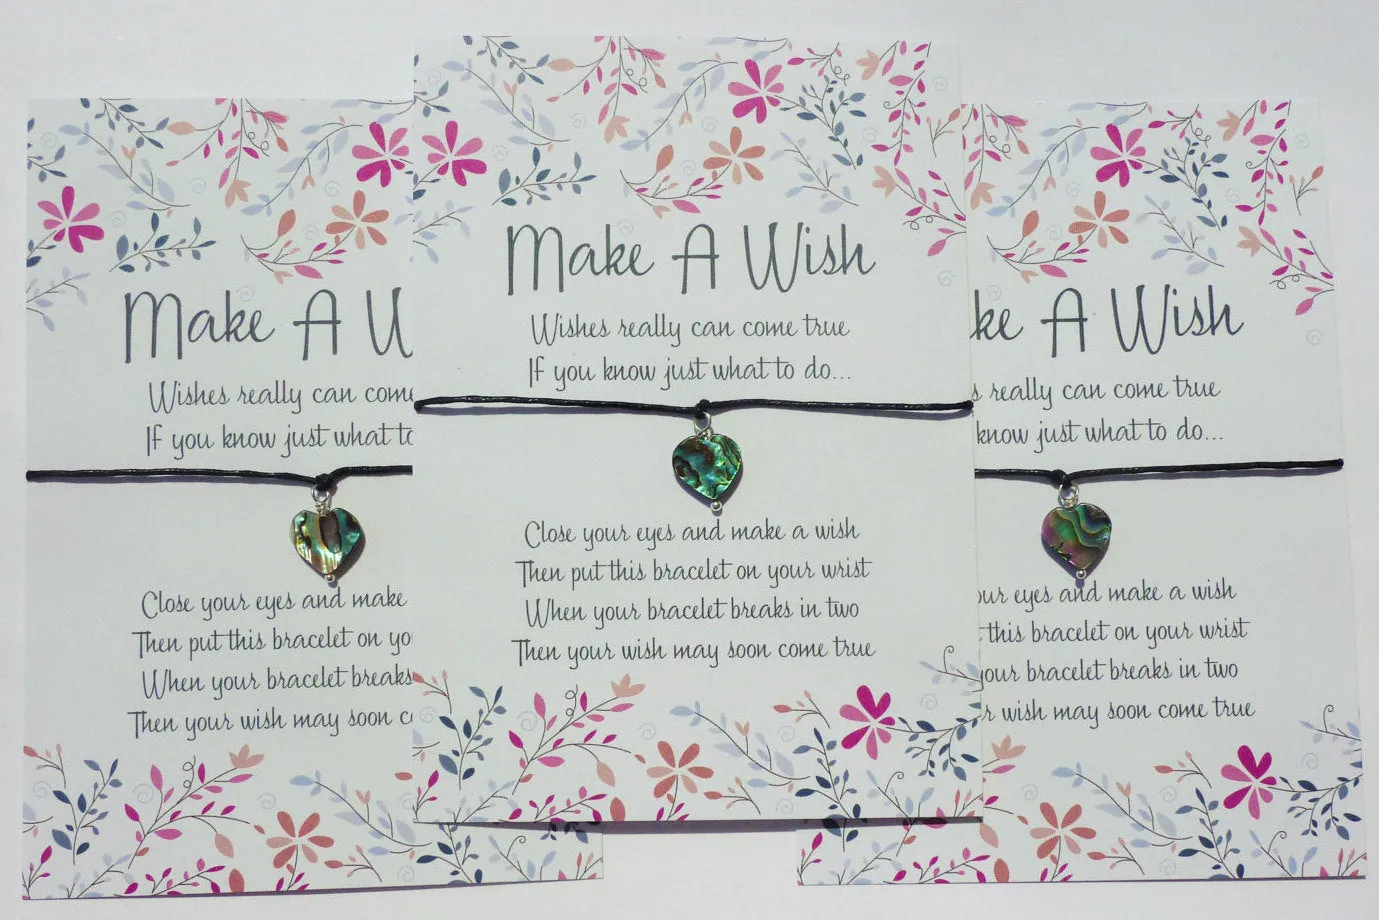 Make A W
Wishes really can come
If you know just what to
Close your eyes and make
Then put this bracelet on yo
When your bracelet breaks
Then your wish may soon c
Make A Wish
Wishes really can come true
If you know just what to do...
Close your eyes and make a wish
Then put this bracelet on your wrist
When your bracelet breaks in two
Then your wish may soon come true
ke A Wish
s really can come true
know just what to do...
our eyes and make a wish
this bracelet on your wrist
your bracelet breaks in two
r wish may soon come true